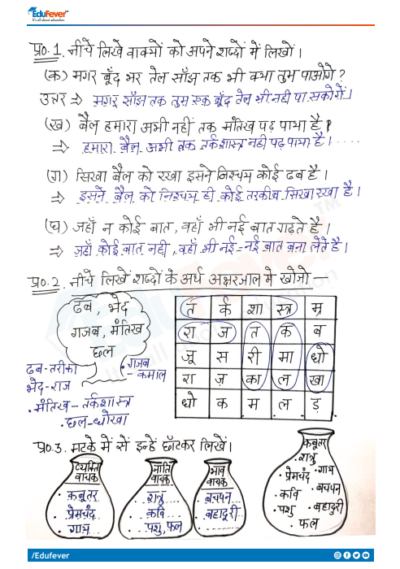 EduFever
प्र०.1. नीचे लिखे वाक्यों को अपने शब्दों में लिखो।
(क) मगर बूँद भर तेल साँझ तक भी क्या तुम पाओगे?
उत्तर ⇒ मगर साँझ तक तुम एक बूँद तेल भी नही पा सकोगे।
(ख) बैल हमारा अभी नहीं तक मंतिख पढ़ पाया है?
⇒ हमारा बैल अभी तक तर्कशास्त्र नही पढ़ पाया है।
(ग) सिखा बैल को रखा इसने निश्चय कोई ढब है।
⇒ इसने बैल को निश्चय ही कोई तरकीब सिखा रखा है।
(घ) जहाँ न कोई बात, वहाँ भी नई बात गढ़ते है।
⇒ जहाँ कोई बात नही, वहाँ भी नई-नई बात बना लेते है।
प्र०.2. नीचे लिखें शब्दों के अर्थ अक्षरजाल में खोजो —
ढब, भेद
गजब, मंतिख
छल
ढब-तरीका
भेद-राज
गजब - कमाल
मंतिख - तर्कशास्त्र
छल-धोखा
त र्क शा स्त्र मू
रा ज त क ब
जू स री मा धो
रा ज़ का ल खा
धो क म ल ड़
प्र०.3. मटके में से इन्हें छाँटकर लिखें।
वाचक
कबूतर
प्रेमचंद
गाय
जाति वाचक
शत्रु
कवि
पशु, फल
भाव वाचक
बचपन
बहादूरी
कबूतर
शत्रु
प्रेमचंद
गाय
कवि
बचपन
पशु
बहादूरी
फल
/Edufever